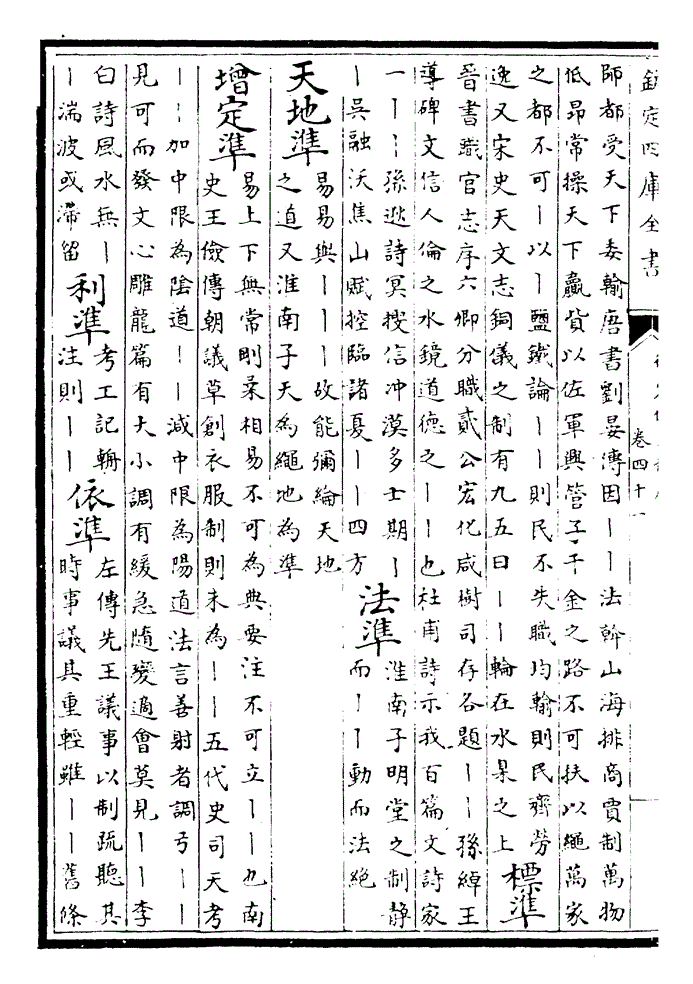 欽定四庫全書
卷四十一
師都受天下委輸唐書劉晏傳因丨丨法斡山海排商賈制萬物
低昂常操天下贏貲以佐軍興管子千金之路不可扶以繩萬家
之都不可丨以丨鹽鐵論丨丨則民不失職均輸則民齊勞
逸又宋史天文志銅儀之制有九五曰丨丨輪在水臬之上
標準
晉書職官志序六卿分職貳公宏化咸樹司存各題丨丨孫綽王
導碑文信人倫之水鏡道德之丨丨也杜甫詩示我百篇文詩家
一丨丨孫逖詩冥搜信沖漠多士期丨
丨吳融沃焦山賦控臨諸夏丨丨四方
法準
淮南子明堂之制静
而丨丨動而法繩
天地準
易易與丨丨丨故能彌綸天地
之道又淮南子天為繩地為準
增定準
易上下無常剛柔相易不可為典要注不可立丨丨也南
史王儉傳朝議草創衣服制則未為丨丨五代史司天考
丨丨加中限為陰道丨丨減中限為陽道法言善射者調弓丨丨
見可而發文心雕龍篇有大小調有緩急隨變適會莫見丨丨李
白詩風水無丨
丨湍波或滯留
利準
考工記輈
注則丨丨
依準
左傳先王議事以制疏聽其
時事議其重輕雖丨丨舊條